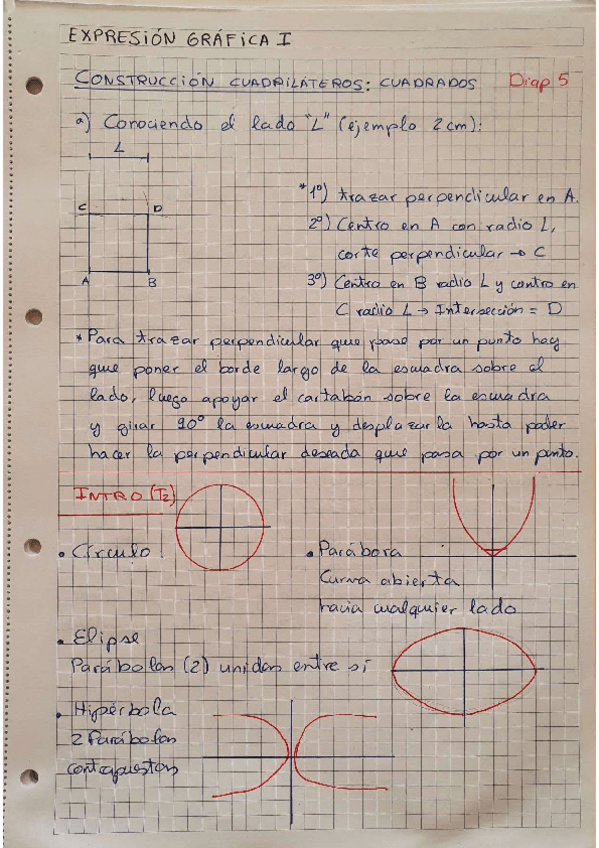 EXPRESIÓN GRÁFICA I
CONSTRUCCIÓN CUADRILÁTEROS: CUADRADOS Diap 5
a) Conociendo el lado "L" (ejemplo 2cm):
L
C D
A B
*1º) trazar perpendicular en A.
2º) Centro en A con radio L,
corte perpendicular → C
3º) Centro en B radio L y centro en
C radio L → Intersección = D
* Para trazar perpendicular que pase por un punto hay
que poner el borde largo de la escuadra sobre el
lado, luego apoyar el cartabón sobre la escuadra
y girar 90º la escuadra y desplazarla hasta poder
hacer la perpendicular deseada que pasa por un punto.
INTRO (T2)
• Círculo
• Parábora
Curva abierta
hacia cualquier lado
• Elipse
Parábolas (2) unidas entre sí
• Hipérbola
2 Parábolas
contrapuestas